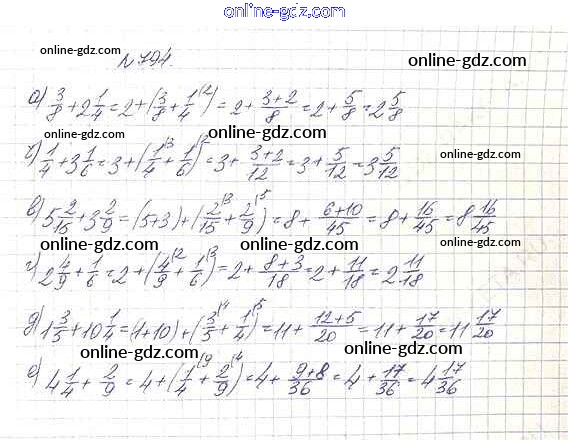 online-gdz.com
online-gdz.com online-gdz.com
№794.
а) 3/8 + 2 1/4 = 2 + (3/8 + 1/4 ^(2) ) = 2 + (3+2)/8 = 2 + 5/8 = 2 5/8
online-gdz.com
б) 1/4 + 3 1/6 = 3 + (1/4 ^3 + 1/6 ^2 ) = 3 + (3+2)/12 = 3 + 5/12 = 3 5/12
online-gdz.com online-gdz.com
в) 5 2/15 + 3 2/9 = (5+3) + (2/15 ^3 + 2/9 ^5 ) = 8 + (6+10)/45 = 8 + 16/45 = 8 16/45
online-gdz.com online-gdz.com
г) 2 4/9 + 1/6 = 2 + (4/9 ^2 + 1/6 ^3 ) = 2 + (8+3)/18 = 2 + 11/18 = 2 11/18
online-gdz.com
д) 1 3/5 + 10 1/4 = (1+10) + (3/5 ^4 + 1/4 ^5 ) = 11 + (12+5)/20 = 11 + 17/20 = 11 17/20
online-gdz.com online-gdz.com
е) 4 1/4 + 2/9 = 4 + (1/4 ^9 + 2/9 ^4 ) = 4 + (9+8)/36 = 4 + 17/36 = 4 17/36
online-gdz.com